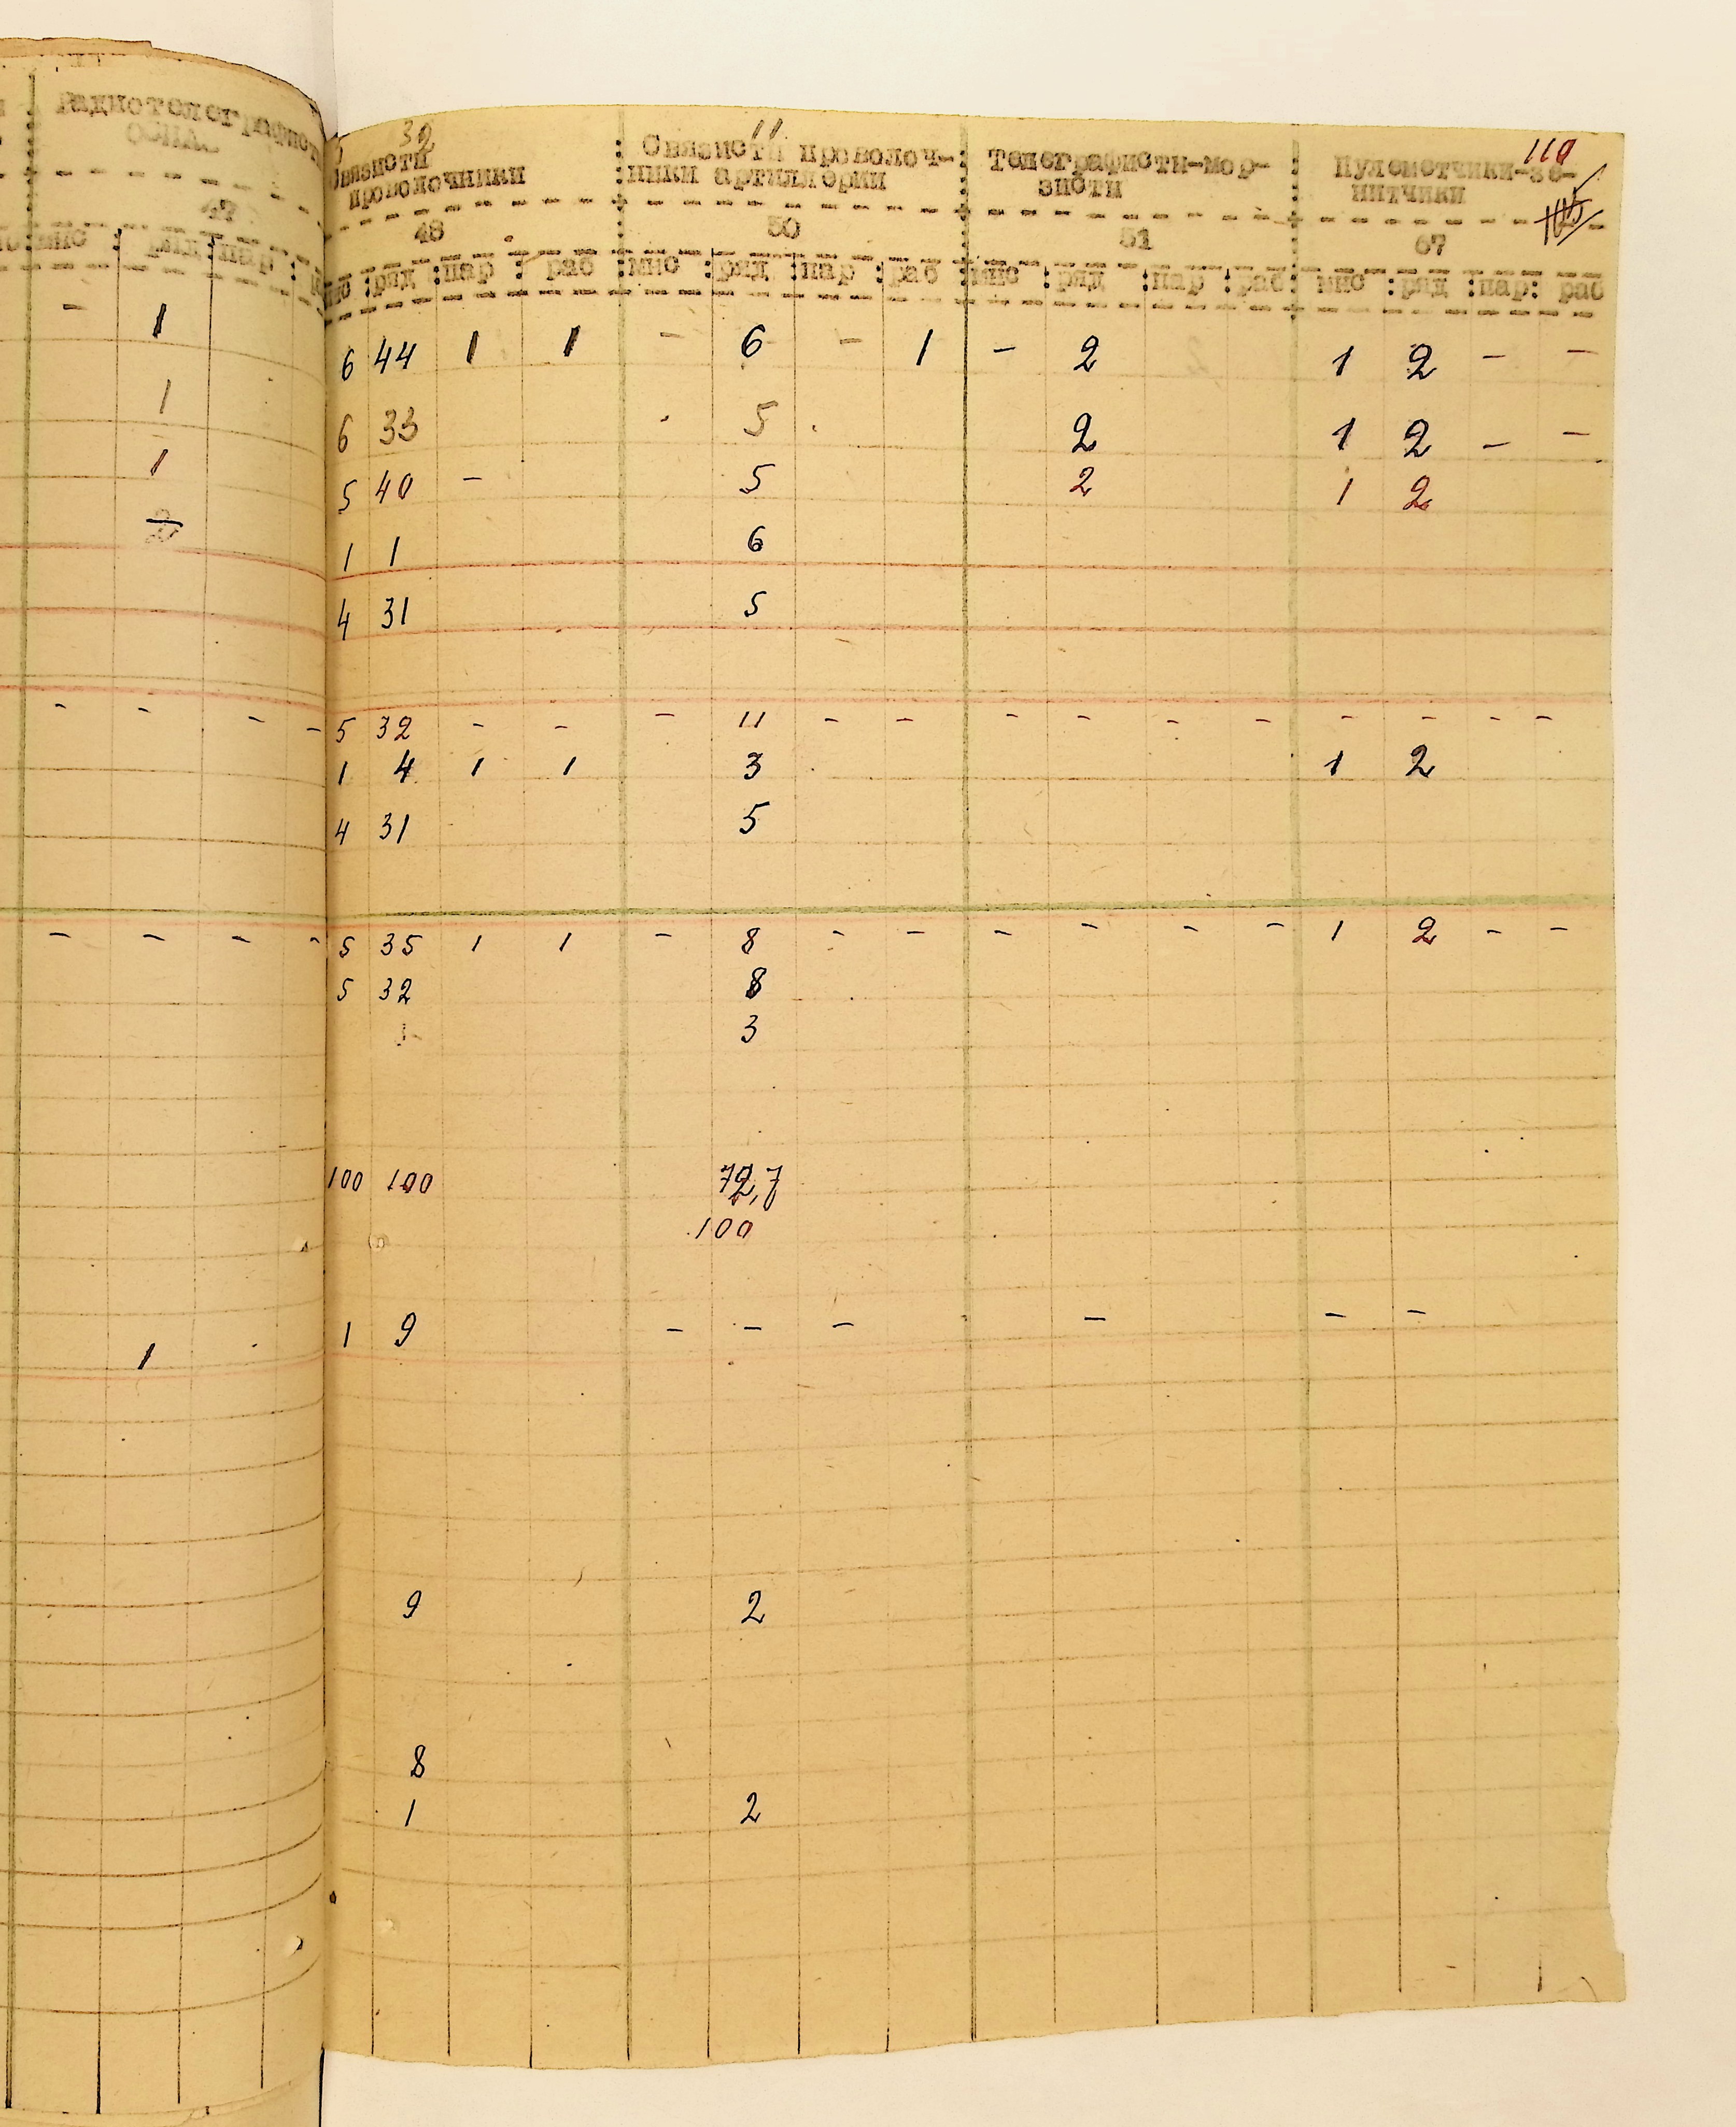 Радиотелеграфисты
ОСНАЗ
32
Связисти проволочники
11
Связисти проволоч-
ники артиллерии
Телеграфисти-мор-
зисти
110
Пулеметчики-зе-
нитчики
48
50
51
67
мнс ряд пар
ряд пар раб мнс ряд пар раб мнс ряд пар раб мнс ряд пар раб
- 1 6 44 1 1 - 6 - 1 - 2 1 2 - -
1 6 33 5 2 1 2 - -
1 5 40 - 5 2 1 2
1 1 6
4 31 5
- - - - 5 32 - - - 11 - - - - - - - - - -
1 4 1 1 3 1 2
4 31 5
- - - - 5 35 1 1 - 8 - - - - - - 1 2 - -
5 32 8
3
100 100 72,7
100
1 9 - - - - - -
1
9 2
8
1 2